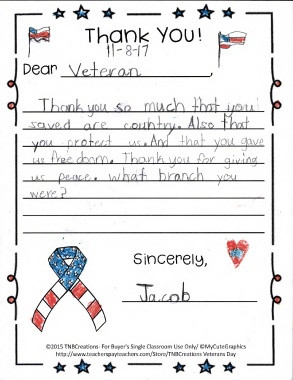 Thank You!
11-8-17
Dear Veteran,
Thank you so much that you
saved are country. Also that
you protect us. And that you gave
us freedom. Thank you for giving
us peace. what branch you
were?
Sincerely,
Jacob
©2015 TNBCreations- For Buyer's Single Classroom Use Only/ ©MyCuteGraphics
http://www.teacherspayteachers.com/Store/TNBCreations Veterans Day